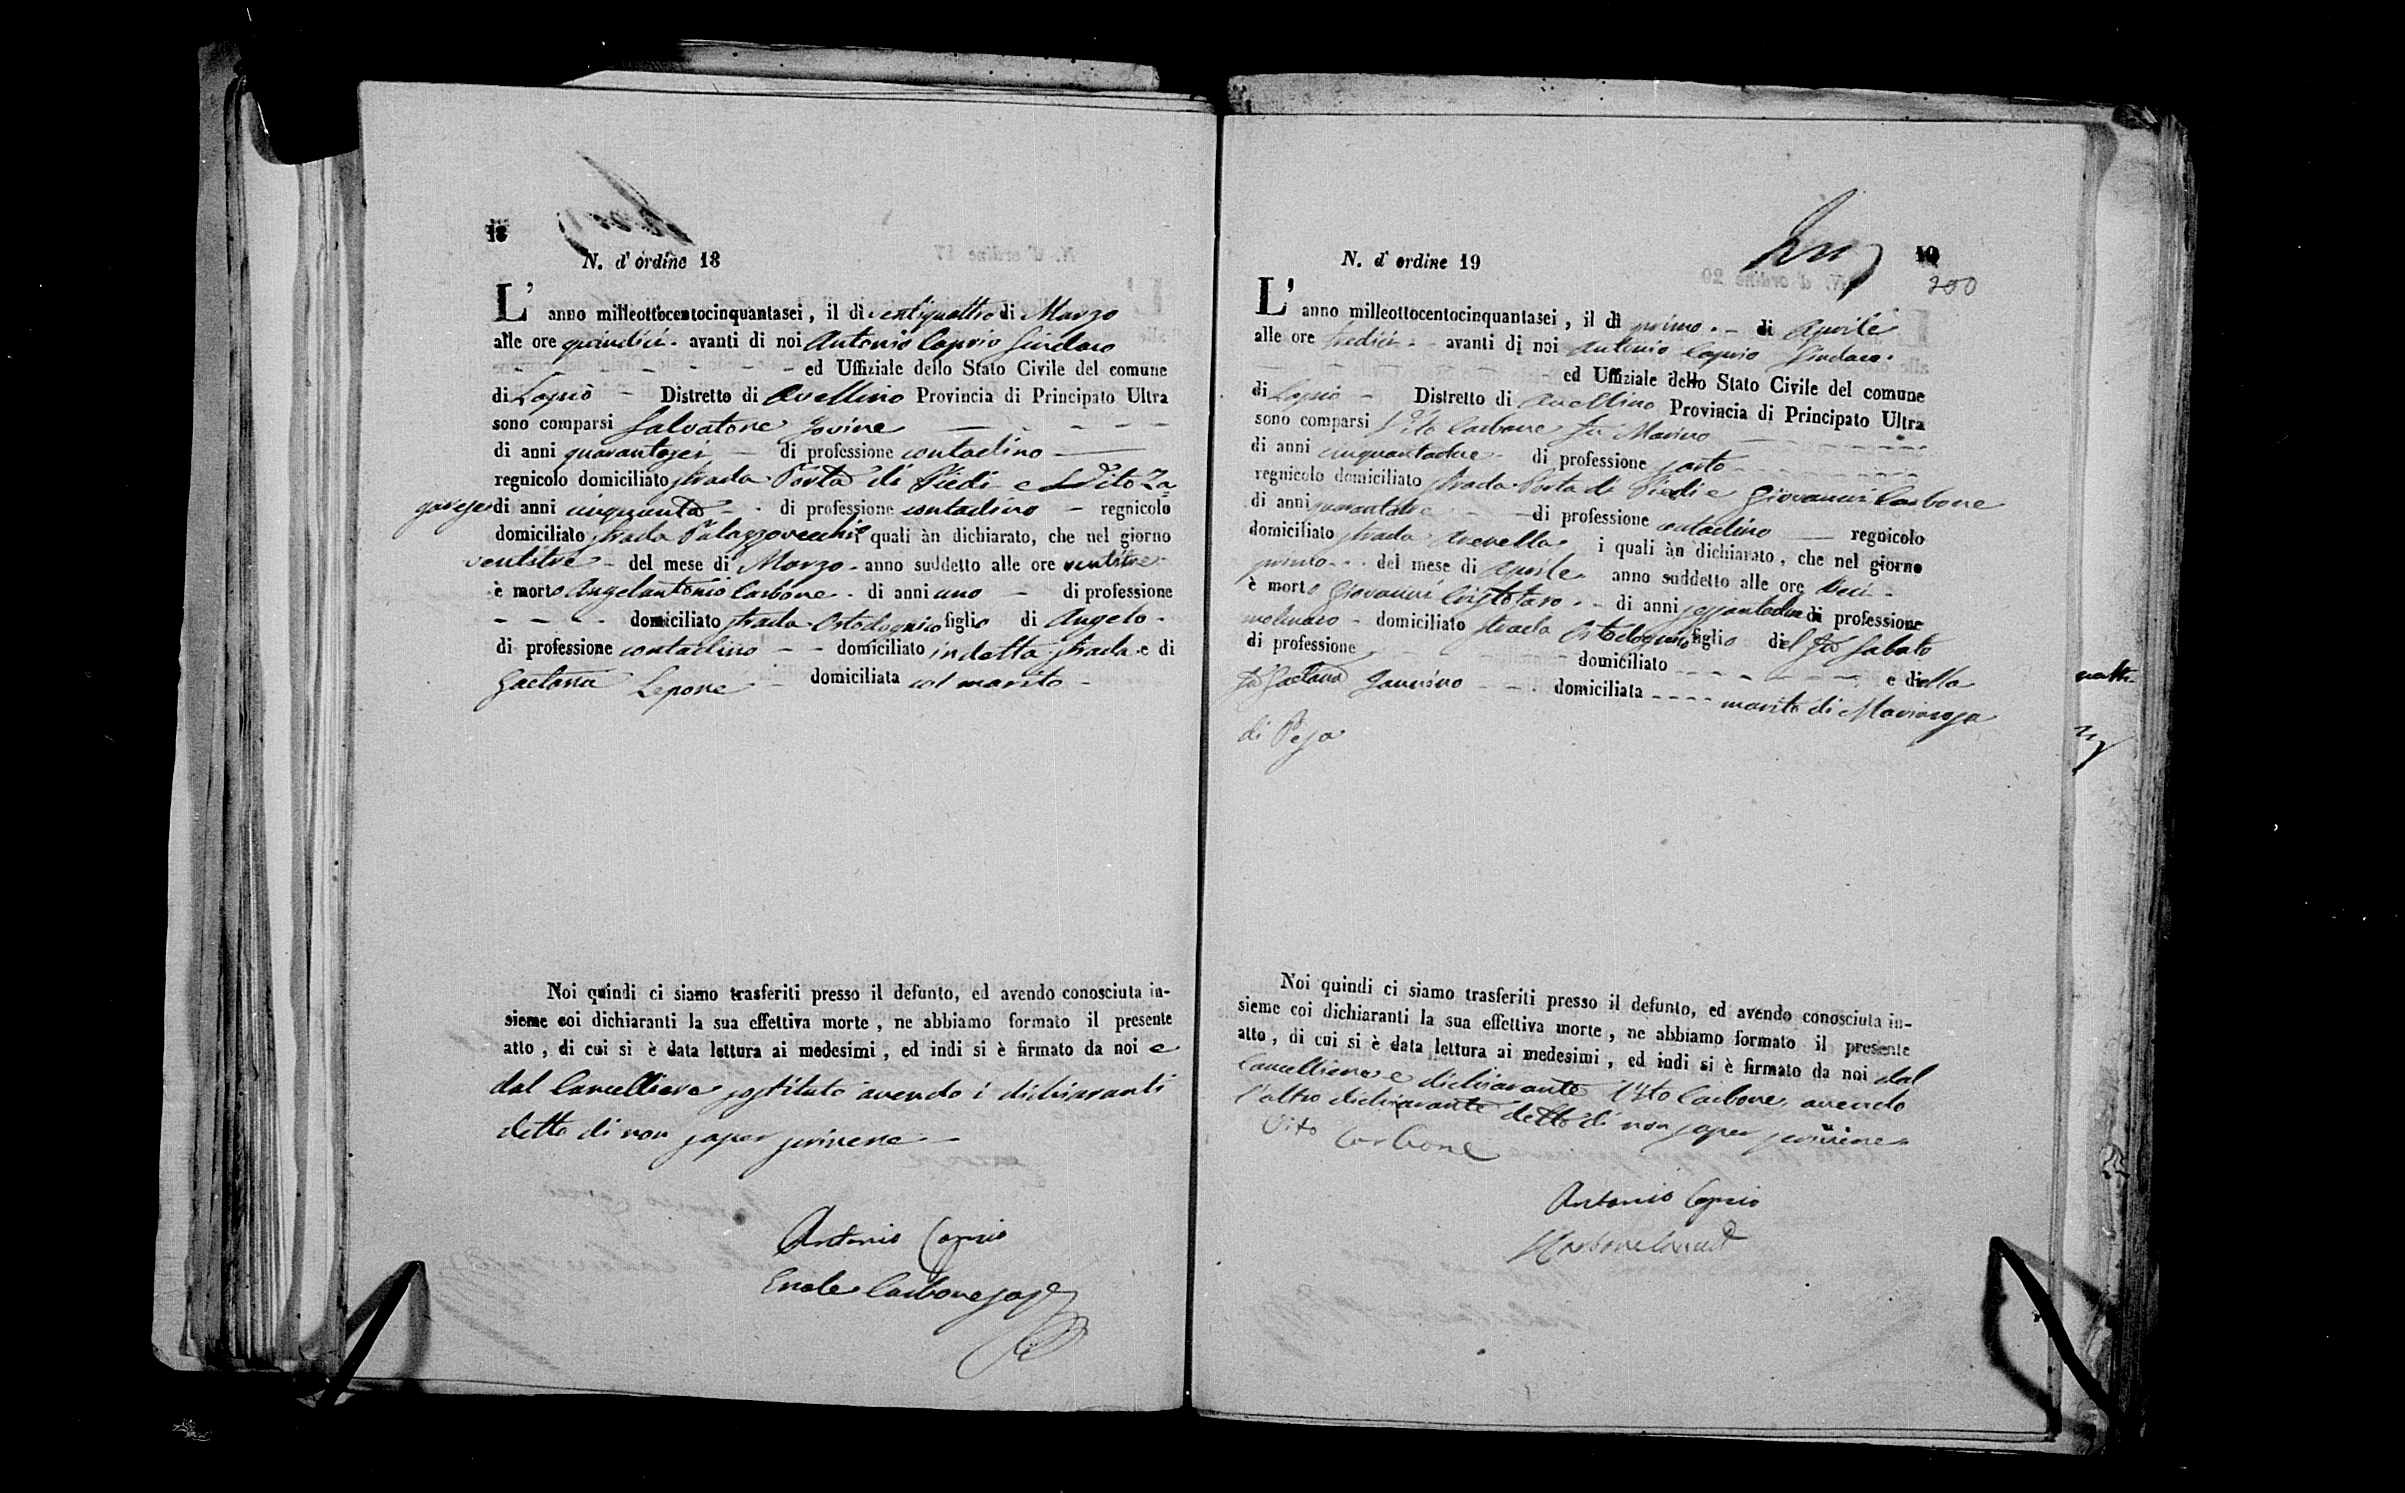 18
N. d' ordine 18
L' anno milleottocentocinquantasei, il di ventiquattro di Marzo
alle ore quindici - avanti di noi Antonio Caprio Sindaco
ed Uffiziale dello Stato Civile del comune
di Lapio - Distretto di Avellino Provincia di Principato Ultra
sono comparsi Salvatore Jovine
di anni quarantasei - di professione contadino
regnicolo domiciliato strada Porta di Piedi e Vito Za=
garese di anni cinquanta - di professione contadino - regnicolo
domiciliato strada Palazzovecchio i quali àn dichiarato, che nel giorno
ventitre - del mese di Marzo - anno suddetto alle ore ventitre
è morto Angelantonio Carbone - di anni uno - di professione
- - - domiciliato strada figlio di Angelo -
di professione contadino - - domiciliato in detta strada e di
Gaetana Lepore - domiciliata col marito -
Noi quindi ci siamo trasferiti presso il defunto, ed avendo conosciuta in-
sieme coi dichiaranti la sua effettiva morte, ne abbiamo formato il presente
atto, di cui si è data lettura ai medesimi, ed indi si è firmato da noi e
dal Cancelliere sostituto avendo i dichiaranti
detto di non saper scrivere -
Antonio Caprio
Carbone
19
200
N. d' ordine 19
L' anno milleottocentocinquantasei, il di primo - di Aprile
alle ore tredici - avanti di noi Antonio Caprio Sindaco
ed Uffiziale dello Stato Civile del comune
di Lapio - Distretto di Avellino Provincia di Principato Ultra
sono comparsi Vito Carbone fu Marino
di anni cinquantadue - di professione sarto
regnicolo domiciliato strada Porta di Piedi e Giovanni Carbone
di anni - di professione contadino - regnicolo
domiciliato strada i quali àn dichiarato, che nel giorno
primo - del mese di Aprile anno suddetto alle ore dieci -
è morto Giovanni Cristofaro - di anni sessantadue di professione
molinaro - domiciliato strada figlio del fu Sabato
di professione - domiciliato - e della
fu Gaetana - domiciliata - marito di Mariarosa
di
Noi quindi ci siamo trasferiti presso il defunto, ed avendo conosciuta in-
sieme coi dichiaranti la sua effettiva morte, ne abbiamo formato il presente
atto, di cui si è data lettura ai medesimi, ed indi si è firmato da noi dal
Cancelliere e dichiarante Vito Carbone, avendo
l'altro dichiarante detto di non saper scrivere
Vito Carbone
Antonio Caprio